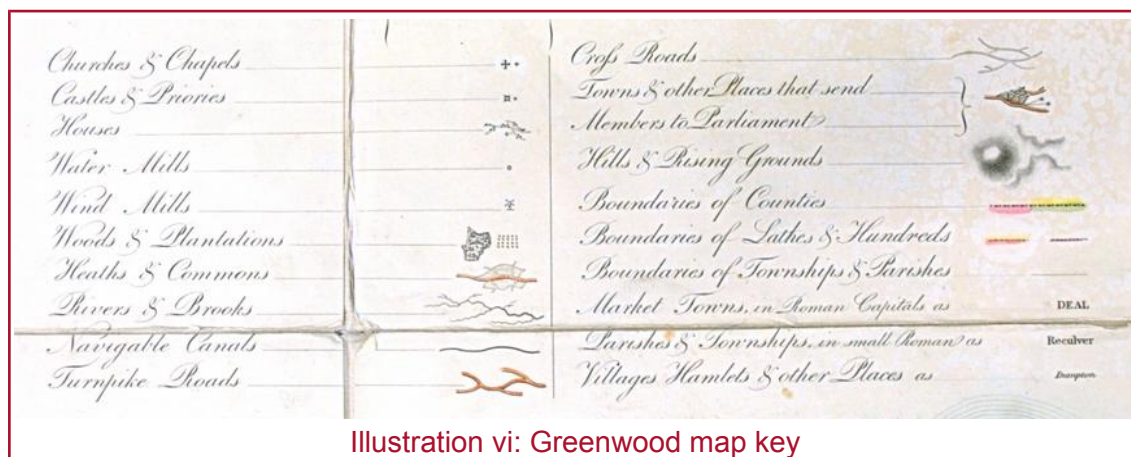 Churches & Chapels
Castles & Priories
Houses
Water Mills
Wind Mills
Woods & Plantations
Heaths & Commons
Rivers & Brooks
Navigable Canals
Turnpike Roads
Croſs Roads
Towns & other Places that send
Members to Parliament
Hills & Rising Grounds
Boundaries of Counties
Boundaries of Lathes & Hundreds
Boundaries of Townships & Parishes
Market Towns, in Roman Capitals as DEAL
Parishes & Townships, in small Roman as Reculver
Villages Hamlets & other Places as
Illustration vi: Greenwood map key